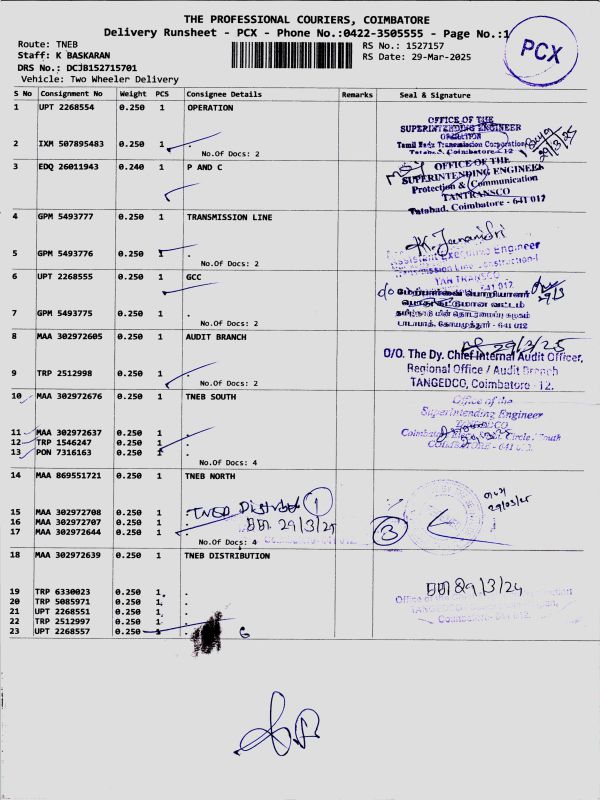 THE PROFESSIONAL COURIERS, COIMBATORE
Delivery Runsheet - PCX - Phone No.:0422-3505555 - Page No.:1
PCX
Route: TNEB
RS No.: 1527157
Staff: K BASKARAN
RS Date: 29-Mar-2025
DRS No.: DCJB152715701
Vehicle: Two Wheeler Delivery
S No Consignment No Weight PCS Consignee Details Remarks Seal & Signature
1 UPT 2268554 0.250 1 OPERATION
OFFICE OF THE
SUPERINTENDING ENGINEER
OPERATION
2 IXM 507895483 0.250 1 .
Tamil Nadu Transmission Corporation
Tatabad, Coimbatore-12
29/3/25
No.Of Docs: 2
3 EDQ 26011943 0.240 1 P AND C
OFFICE OF THE
SUPERINTENDING ENGINEER
Protection & Communication
TANTRANSCO
Tatabad, Coimbatore - 641 012
4 GPM 5493777 0.250 1 TRANSMISSION LINE
5 GPM 5493776 0.250 1 .
Assistant Executive Engineer
Transmission Line Construction-I
TAN TRANSCO
641 012
No.Of Docs: 2
6 UPT 2268555 0.250 1 GCC
29/3
மேற்பார்வை பொறியாளர்
பொது கட்டுமான வட்டம்
7 GPM 5493775 0.250 1 .
தமிழ்நாடு மின் தொடரமைப்பு கழகம்
டாடாபாத், கோயமுத்தூர் - 641 012
No.Of Docs: 2
8 MAA 302972605 0.250 1 AUDIT BRANCH
29/3/25
O/O. The Dy. Chief Internal Audit Officer,
Regional Office / Audit Branch
9 TRP 2512998 0.250 1 .
TANGEDCO, Coimbatore - 12.
No.Of Docs: 2
10 MAA 302972676 0.250 1 TNEB SOUTH
Office of the
Superintending Engineer
TANGEDCO
11 MAA 302972637 0.250 1 .
12 TRP 1546247 0.250 1 .
13 PON 7316163 0.250 1 .
No.Of Docs: 4
14 MAA 869551721 0.250 1 TNEB NORTH
TNEB Distribut 1
29/03/25
15 MAA 302972708 0.250 1 .
16 MAA 302972707 0.250 1 .
17 MAA 302972644 0.250 1 .
29/3/25
3
No.Of Docs: 4
18 MAA 302972639 0.250 1 TNEB DISTRIBUTION
29/3/24
19 TRP 6330023 0.250 1 .
20 TRP 5085971 0.250 1 .
21 UPT 2268551 0.250 1 .
22 TRP 2512997 0.250 1 .
23 UPT 2268557 0.250 1 6